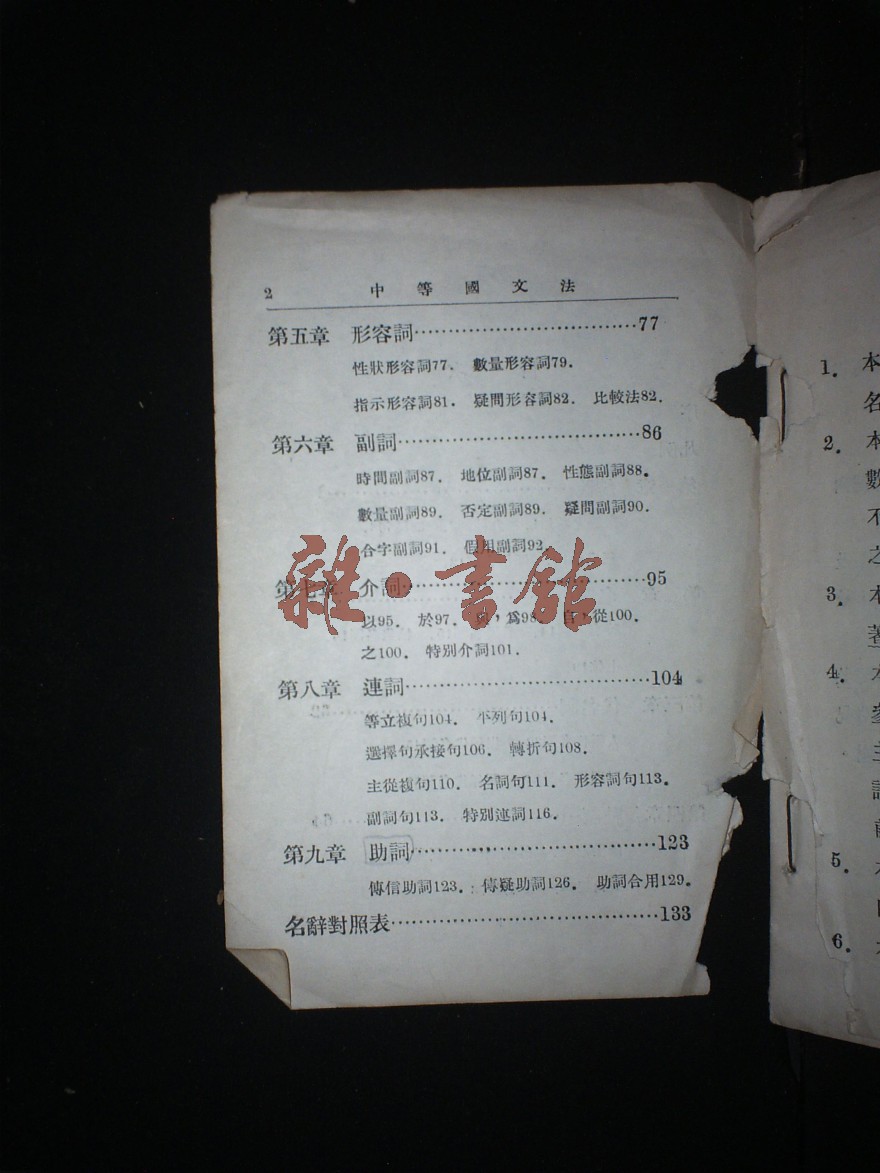 2 中等國文法
第五章 形容詞………………………………77
性狀形容詞77. 數量形容詞79.
指示形容詞81. 疑問形容詞82. 比較法82.
第六章 副詞………………………………86
時間副詞87. 地位副詞87. 性態副詞88.
數量副詞89. 否定副詞89. 疑問副詞90.
合字副詞91. 假用副詞92.
雜·書館
第七章 介詞………………………………95
以95. 於97. 與,爲98. 自,從100.
之100. 特別介詞101.
第八章 連詞………………………………104
等立複句104. 平列句104.
選擇句承接句106. 轉折句108.
主從複句110. 名詞句111. 形容詞句113.
副詞句113. 特別連詞116.
第九章 助詞………………………………123
傳信助詞123. 傳疑助詞126. 助詞合用129.
名辭對照表………………………………133
1. 本
名
2. 本
數
不
之
3. 本
著
4.
參
主
5.
6.